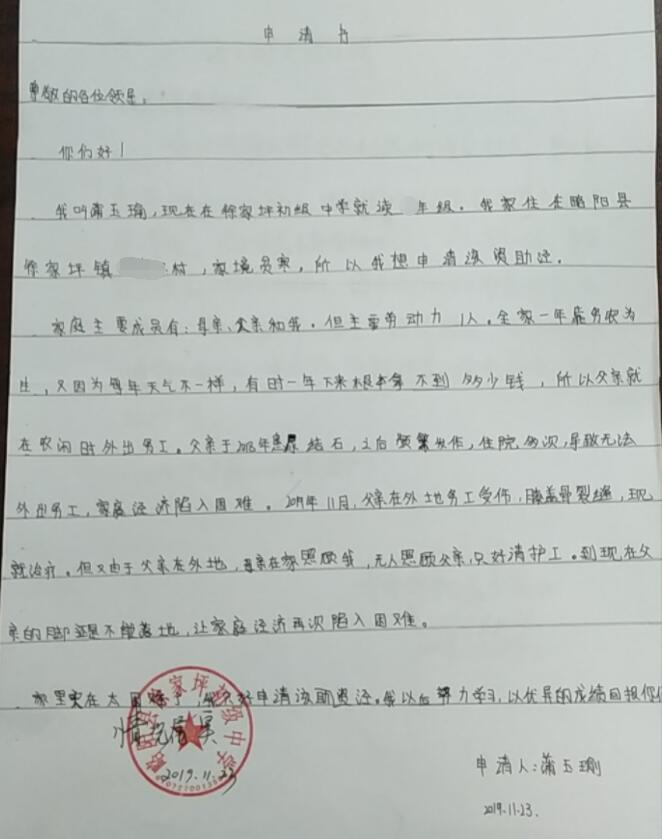 申请书
尊敬的各位领导:
你们好!
我叫蒲玉瑜,现在在徐家坪初级中学就读 年级。我家住在略阳县
徐家坪镇 村,家境贫寒,所以我想申请该资助还。
家庭主要成员有:母亲、父亲和我。但主要劳动力1人。全家一年靠务农为
生,又因为每年天气不一样,有时一年下来根本拿不到多少钱,所以父亲就
在农闲时外出务工。父亲于 年患尿结石,之后频繁发作,住院多次,导致无法
外出务工,家庭经济陷入困难。 年11月,父亲在外地务工受伤,膝盖骨裂缝,现
就治疗。但又由于父亲在外地,母亲在家照顾我,无人照顾父亲,只好请护工。到现在父
亲的脚还是不能落地,让家庭经济再次陷入困难。
家里实在太困难了,我只好申请该助资还。我以后努力学习,以优异的成绩回报你们
情况属实
2019.11.23
略阳县徐家坪初级中学
申请人:蒲玉瑜
2019.11.23.